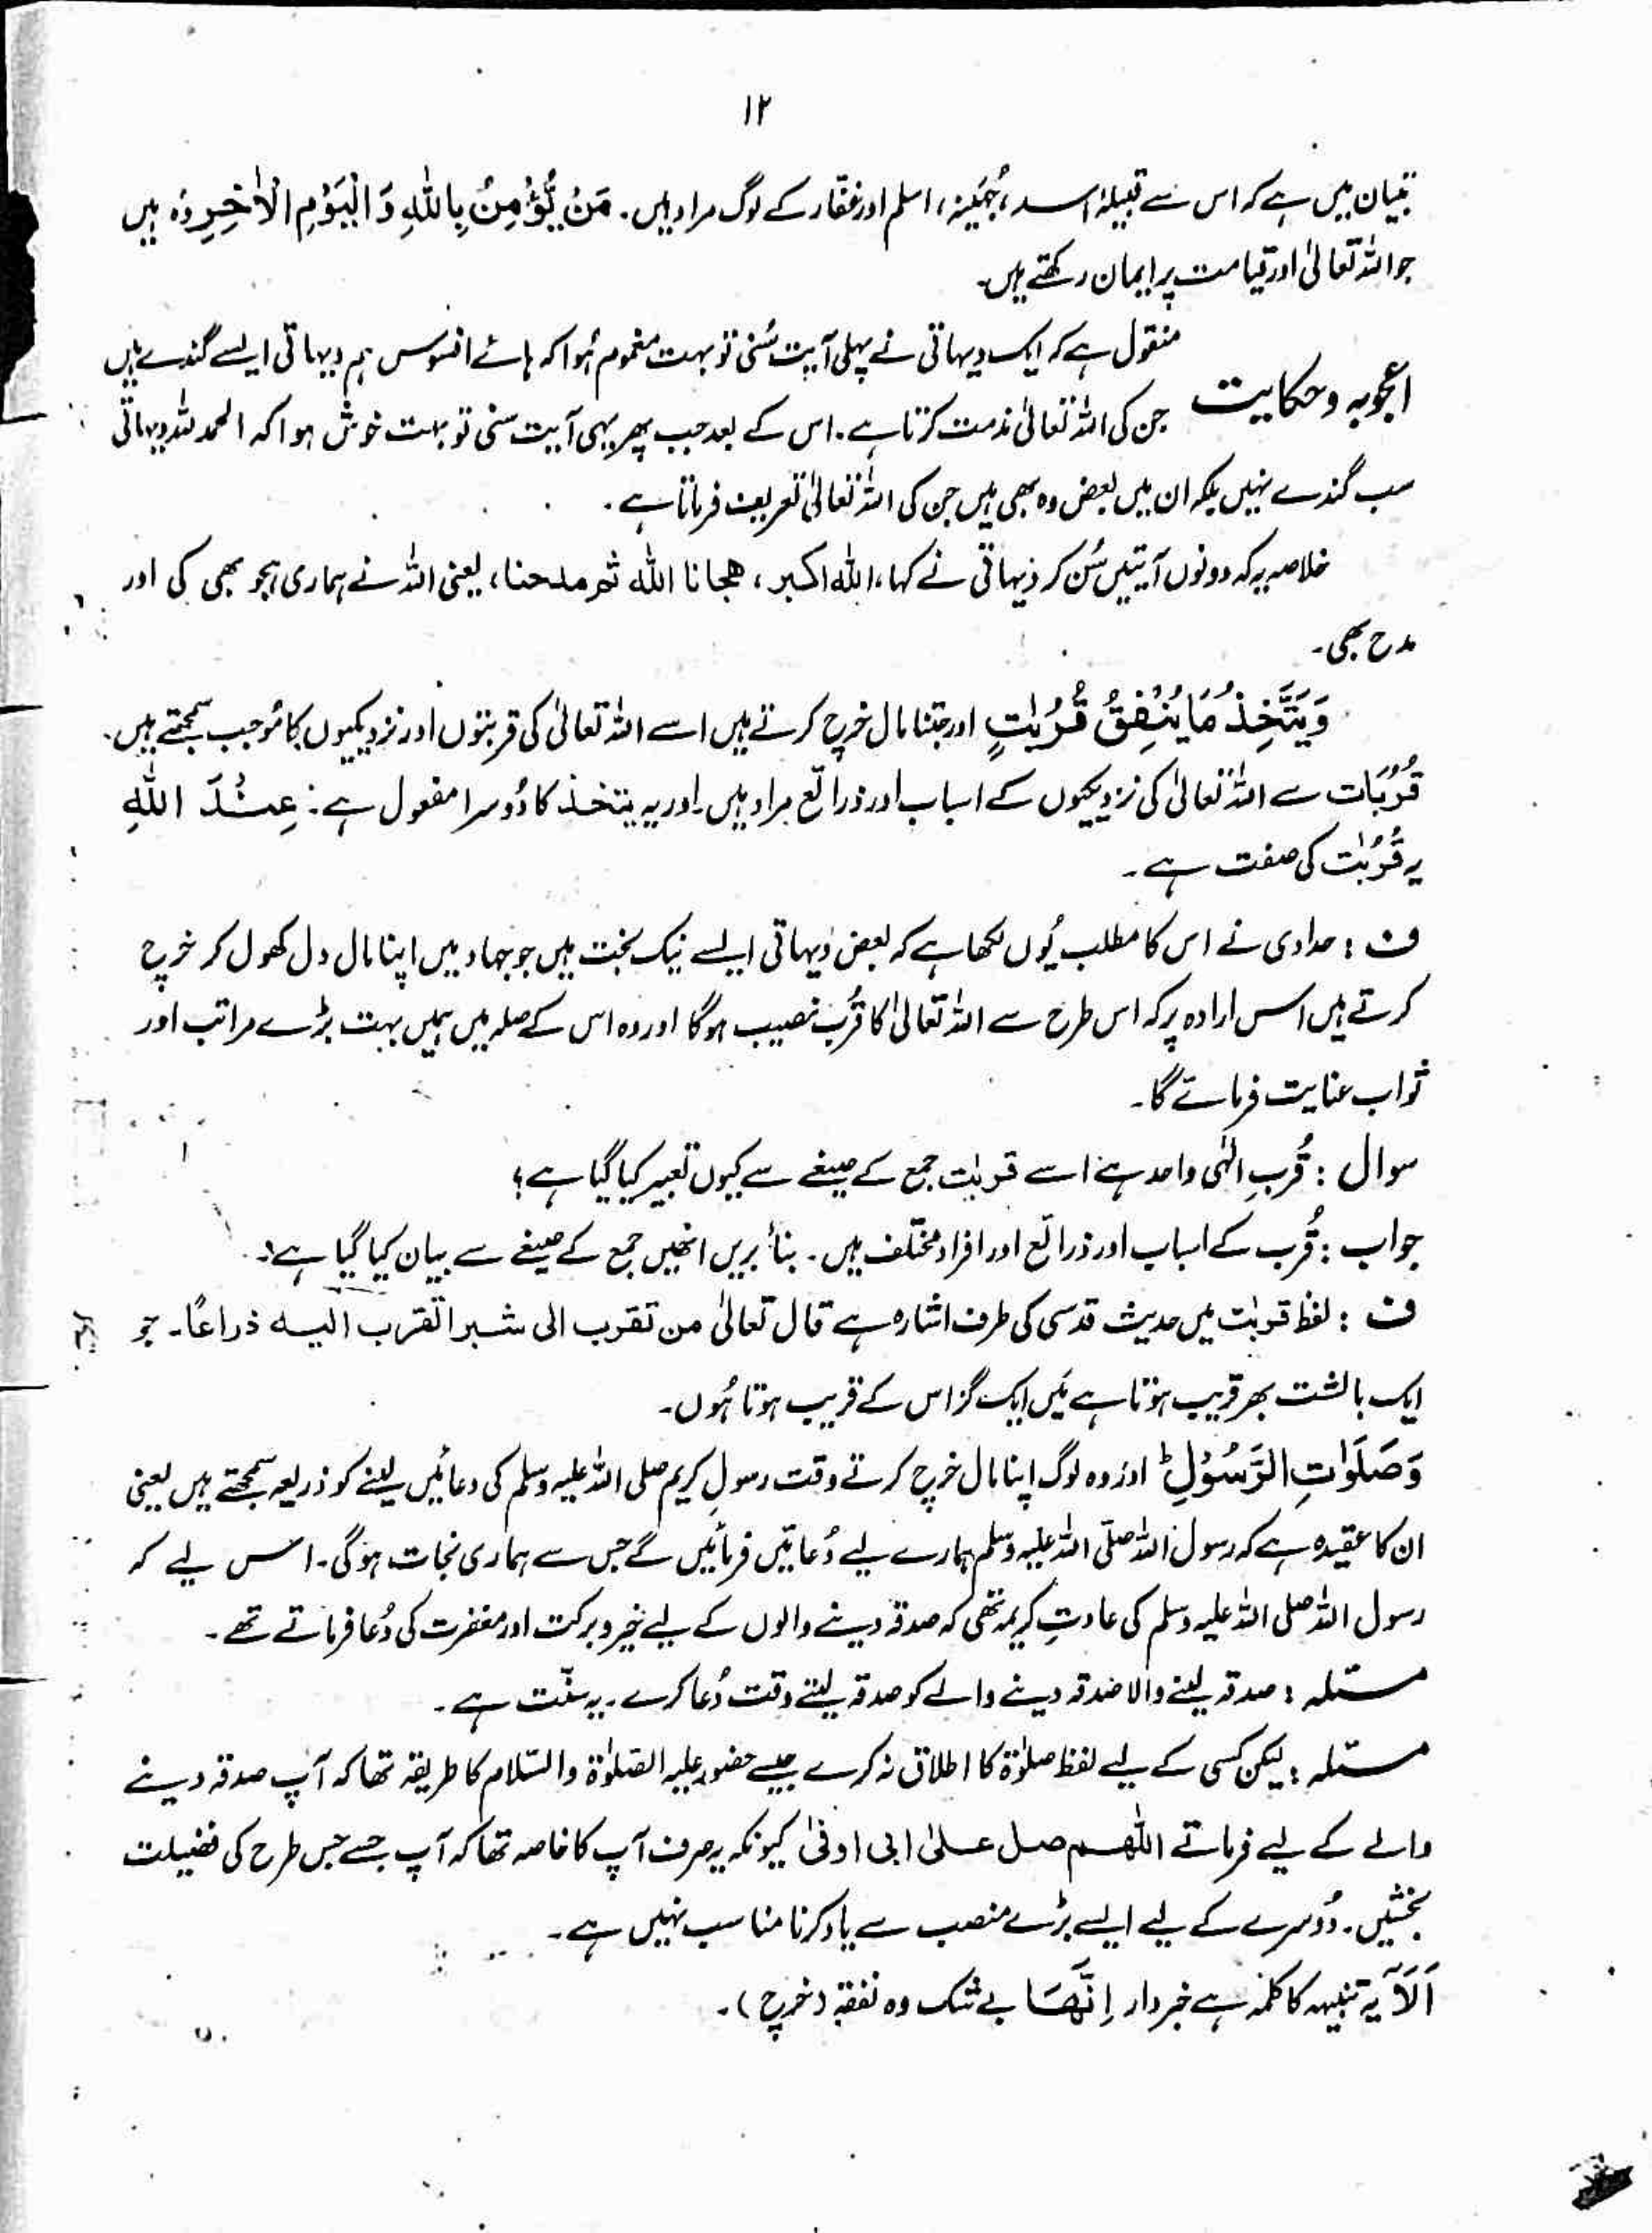 ۱۲
تبیان میں ہے کہ اس سے قبیلۂ اسد، جُہَینہ، اسلم اور غفار کے لوگ مراد ہیں۔ مَنْ یُّؤْمِنُ بِاللّٰہِ وَ الْیَوْمِ الْاٰخِرِ وُہ ہیں
جو اللہ تعالیٰ اور قیامت پر ایمان رکھتے ہیں۔
اعجوبہ و حکایت منقول ہے کہ ایک دیہاتی نے پہلی آیت سُنی تو بہت مغموم ہُوا کہ ہائے افسوس ہم دیہاتی ایسے گندے ہیں
جن کی اللہ تعالیٰ مذمت کرتا ہے۔ اس کے بعد جب پھر یہی آیت سنی تو بہت خوش ہوا کہ الحمد للہ دیہاتی
سب گندے نہیں بلکہ ان میں بعض وہ بھی ہیں جن کی اللہ تعالیٰ تعریف فرماتا ہے۔
خلاصہ یہ کہ دونوں آیتیں سُن کر دیہاتی نے کہا، اللہ اکبر، ھجانا اللہ ثم مدحنا، یعنی اللہ نے ہماری ہجو بھی کی اور
مدح بھی۔
وَیَتَّخِذُ مَا یُنْفِقُ قُرُبٰتٍ اور جتنا مال خرچ کرتے ہیں اسے اللہ تعالیٰ کی قربتوں اور نزدیکیوں کا مُوجب سمجھتے ہیں۔
قُرُبَات سے اللہ تعالیٰ کی نزدیکیوں کے اسباب اور ذرائع مراد ہیں۔ اور یہ یتخذ کا دُوسرا مفعول ہے: عِنْدَ اللّٰہِ
یہ قُرُبٰت کی صفت ہے۔
ف : حدادی نے اس کا مطلب یُوں لکھا ہے کہ بعض دیہاتی ایسے نیک بخت ہیں جو جہاد میں اپنا مال دل کھول کر خرچ
کرتے ہیں اس ارادہ پر کہ اس طرح سے اللہ تعالیٰ کا قُرب نصیب ہوگا اور وہ اس کے صلہ میں ہمیں بہت بڑے مراتب اور
ثواب عنایت فرمائے گا۔
سوال : قُربِ الٰہی واحد ہے اسے قربٰت جمع کے صیغے سے کیوں تعبیر کیا گیا ہے؟
جواب : قُرب کے اسباب اور ذرائع اور افراد مختلف ہیں۔ بنأ بریں انھیں جمع کے صیغے سے بیان کیا گیا ہے۔
ف : لفظ قربٰت میں حدیث قدسی کی طرف اشارہ ہے قال تعالیٰ من تقرب الی شبرا تقرب الیہ ذراعًا۔ جو
ایک بالشت بھر قریب ہوتا ہے مَیں ایک گز اس کے قریب ہوتا ہُوں۔
وَصَلَوٰتِ الرَّسُوْلِ ؕ اور وہ لوگ اپنا مال خرچ کرتے وقت رسولِ کریم صلی اللہ علیہ وسلم کی دعائیں لینے کو ذریعہ سمجھتے ہیں یعنی
ان کا عقیدہ ہے کہ رسول اللہ صلّی اللہ علیہ وسلم ہمارے لیے دُعائیں فرمائیں گے جس سے ہماری نجات ہوگی۔ اس لیے کہ
رسول اللہ صلی اللہ علیہ وسلم کی عادتِ کریمہ تھی کہ صدقہ دینے والوں کے لیے خیر و برکت اور مغفرت کی دُعا فرماتے تھے۔
مسئلہ : صدقہ لینے والا صدقہ دینے والے کو صدقہ لیتے وقت دُعا کرے۔ یہ سنّت ہے۔
مسئلہ : لیکن کسی کے لیے لفظ صلوٰۃ کا اطلاق نہ کرے جیسے حضور علیہ الصّلوٰۃ والسّلام کا طریقہ تھا کہ آپ صدقہ دینے
والے کے لیے فرماتے اللّٰھم صل علیٰ ابی اوفیٰ کیونکہ یہ صرف آپ کا خاصہ تھا کہ آپ جسے جس طرح کی فضیلت
بخشیں۔ دُوسرے کے لیے ایسے بڑے منصب سے یاد کرنا مناسب نہیں ہے۔
اَلَآ یہ تنبیہہ کا کلمہ ہے خبردار اِنَّھَا بے شک وہ نفقہ (خرچ)۔